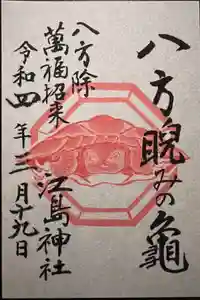 八方睨みの亀
八方除
萬福招来
江島神社
令和四年三月十九日